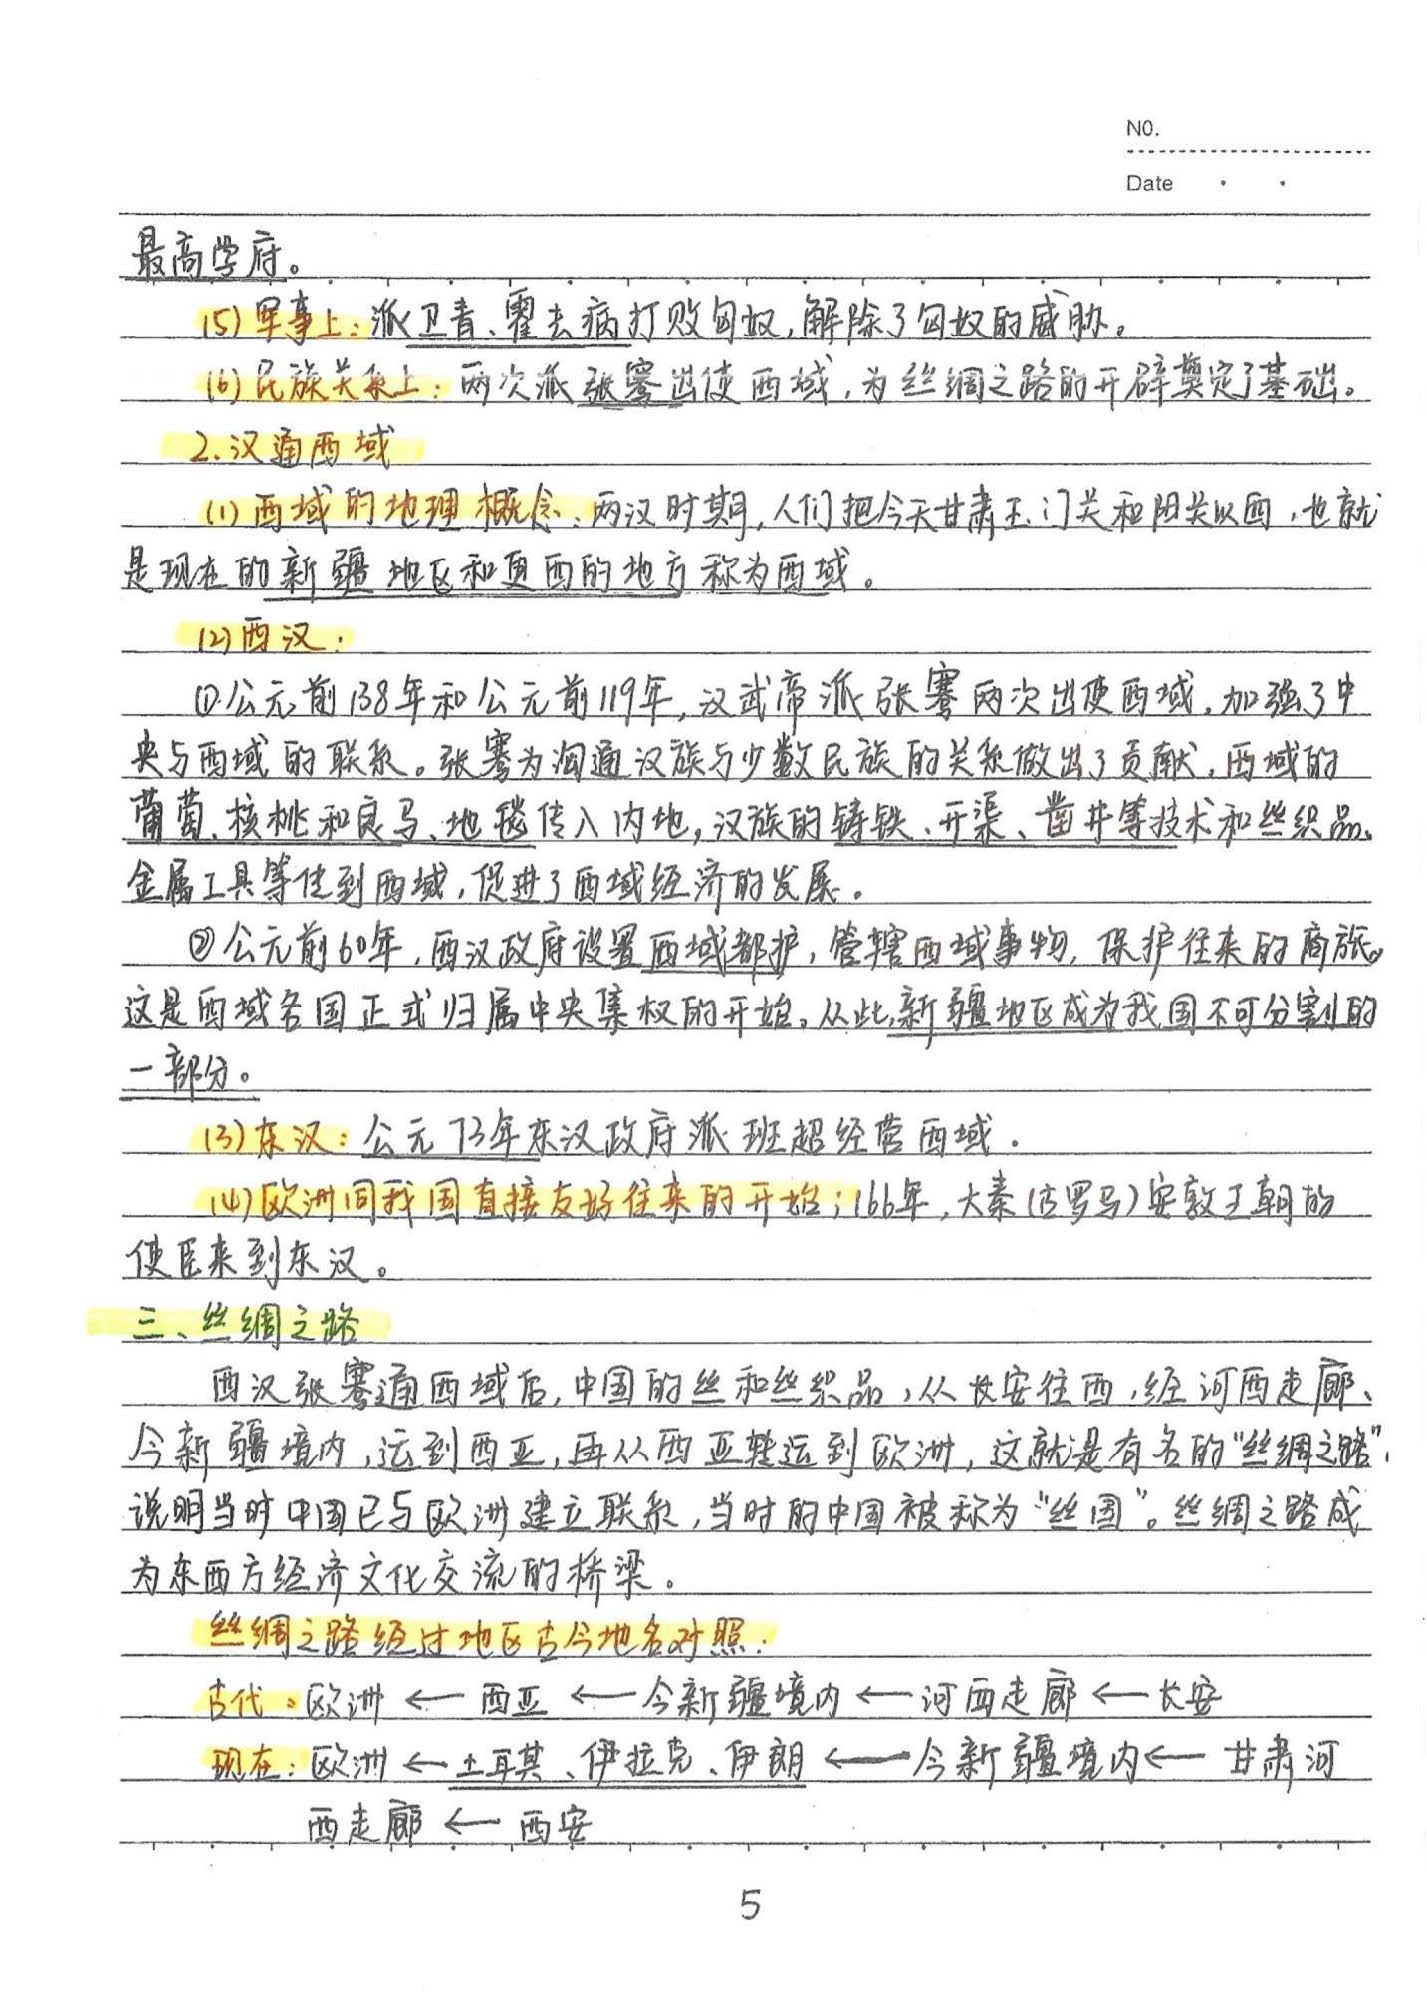 NO.
Date
最高学府。
(5)军事上:派卫青、霍去病打败匈奴,解除了匈奴的威胁。
(6)民族关系上:两次派张骞出使西域,为丝绸之路的开辟奠定了基础。
2.汉通西域
(1)西域的地理概念:两汉时期,人们把今天甘肃玉门关和阳关以西,也就
是现在的新疆地区和更西的地方称为西域。
(2)西汉:
①公元前138年和公元前119年,汉武帝派张骞两次出使西域,加强了中
央与西域的联系。张骞为沟通汉族与少数民族的关系做出了贡献,西域的
葡萄、核桃和良马、地毯传入内地,汉族的铸铁、开渠、凿井等技术和丝织品、
金属工具等传到西域,促进了西域经济的发展。
②公元前60年,西汉政府设置西域都护,管辖西域事物,保护往来的商旅。
这是西域各国正式归属中央集权的开始。从此,新疆地区成为我国不可分割的
一部分。
(3)东汉:公元73年东汉政府派班超经营西域.
(4)欧洲同我国直接友好往来的开始:166年,大秦(古罗马)安敦王朝的
使臣来到东汉。
三、丝绸之路
西汉张骞通西域后,中国的丝和丝织品,从长安往西,经河西走廊、
今新疆境内,运到西亚,再从西亚转运到欧洲,这就是有名的“丝绸之路”,
说明当时中国已与欧洲建立联系,当时的中国被称为“丝国”。丝绸之路成
为东西方经济文化交流的桥梁。
丝绸之路经过地区古今地名对照:
古代:欧洲←西亚←今新疆境内←河西走廊←长安
现在:欧洲←土耳其、伊拉克、伊朗←今新疆境内←甘肃河
西走廊←西安
5